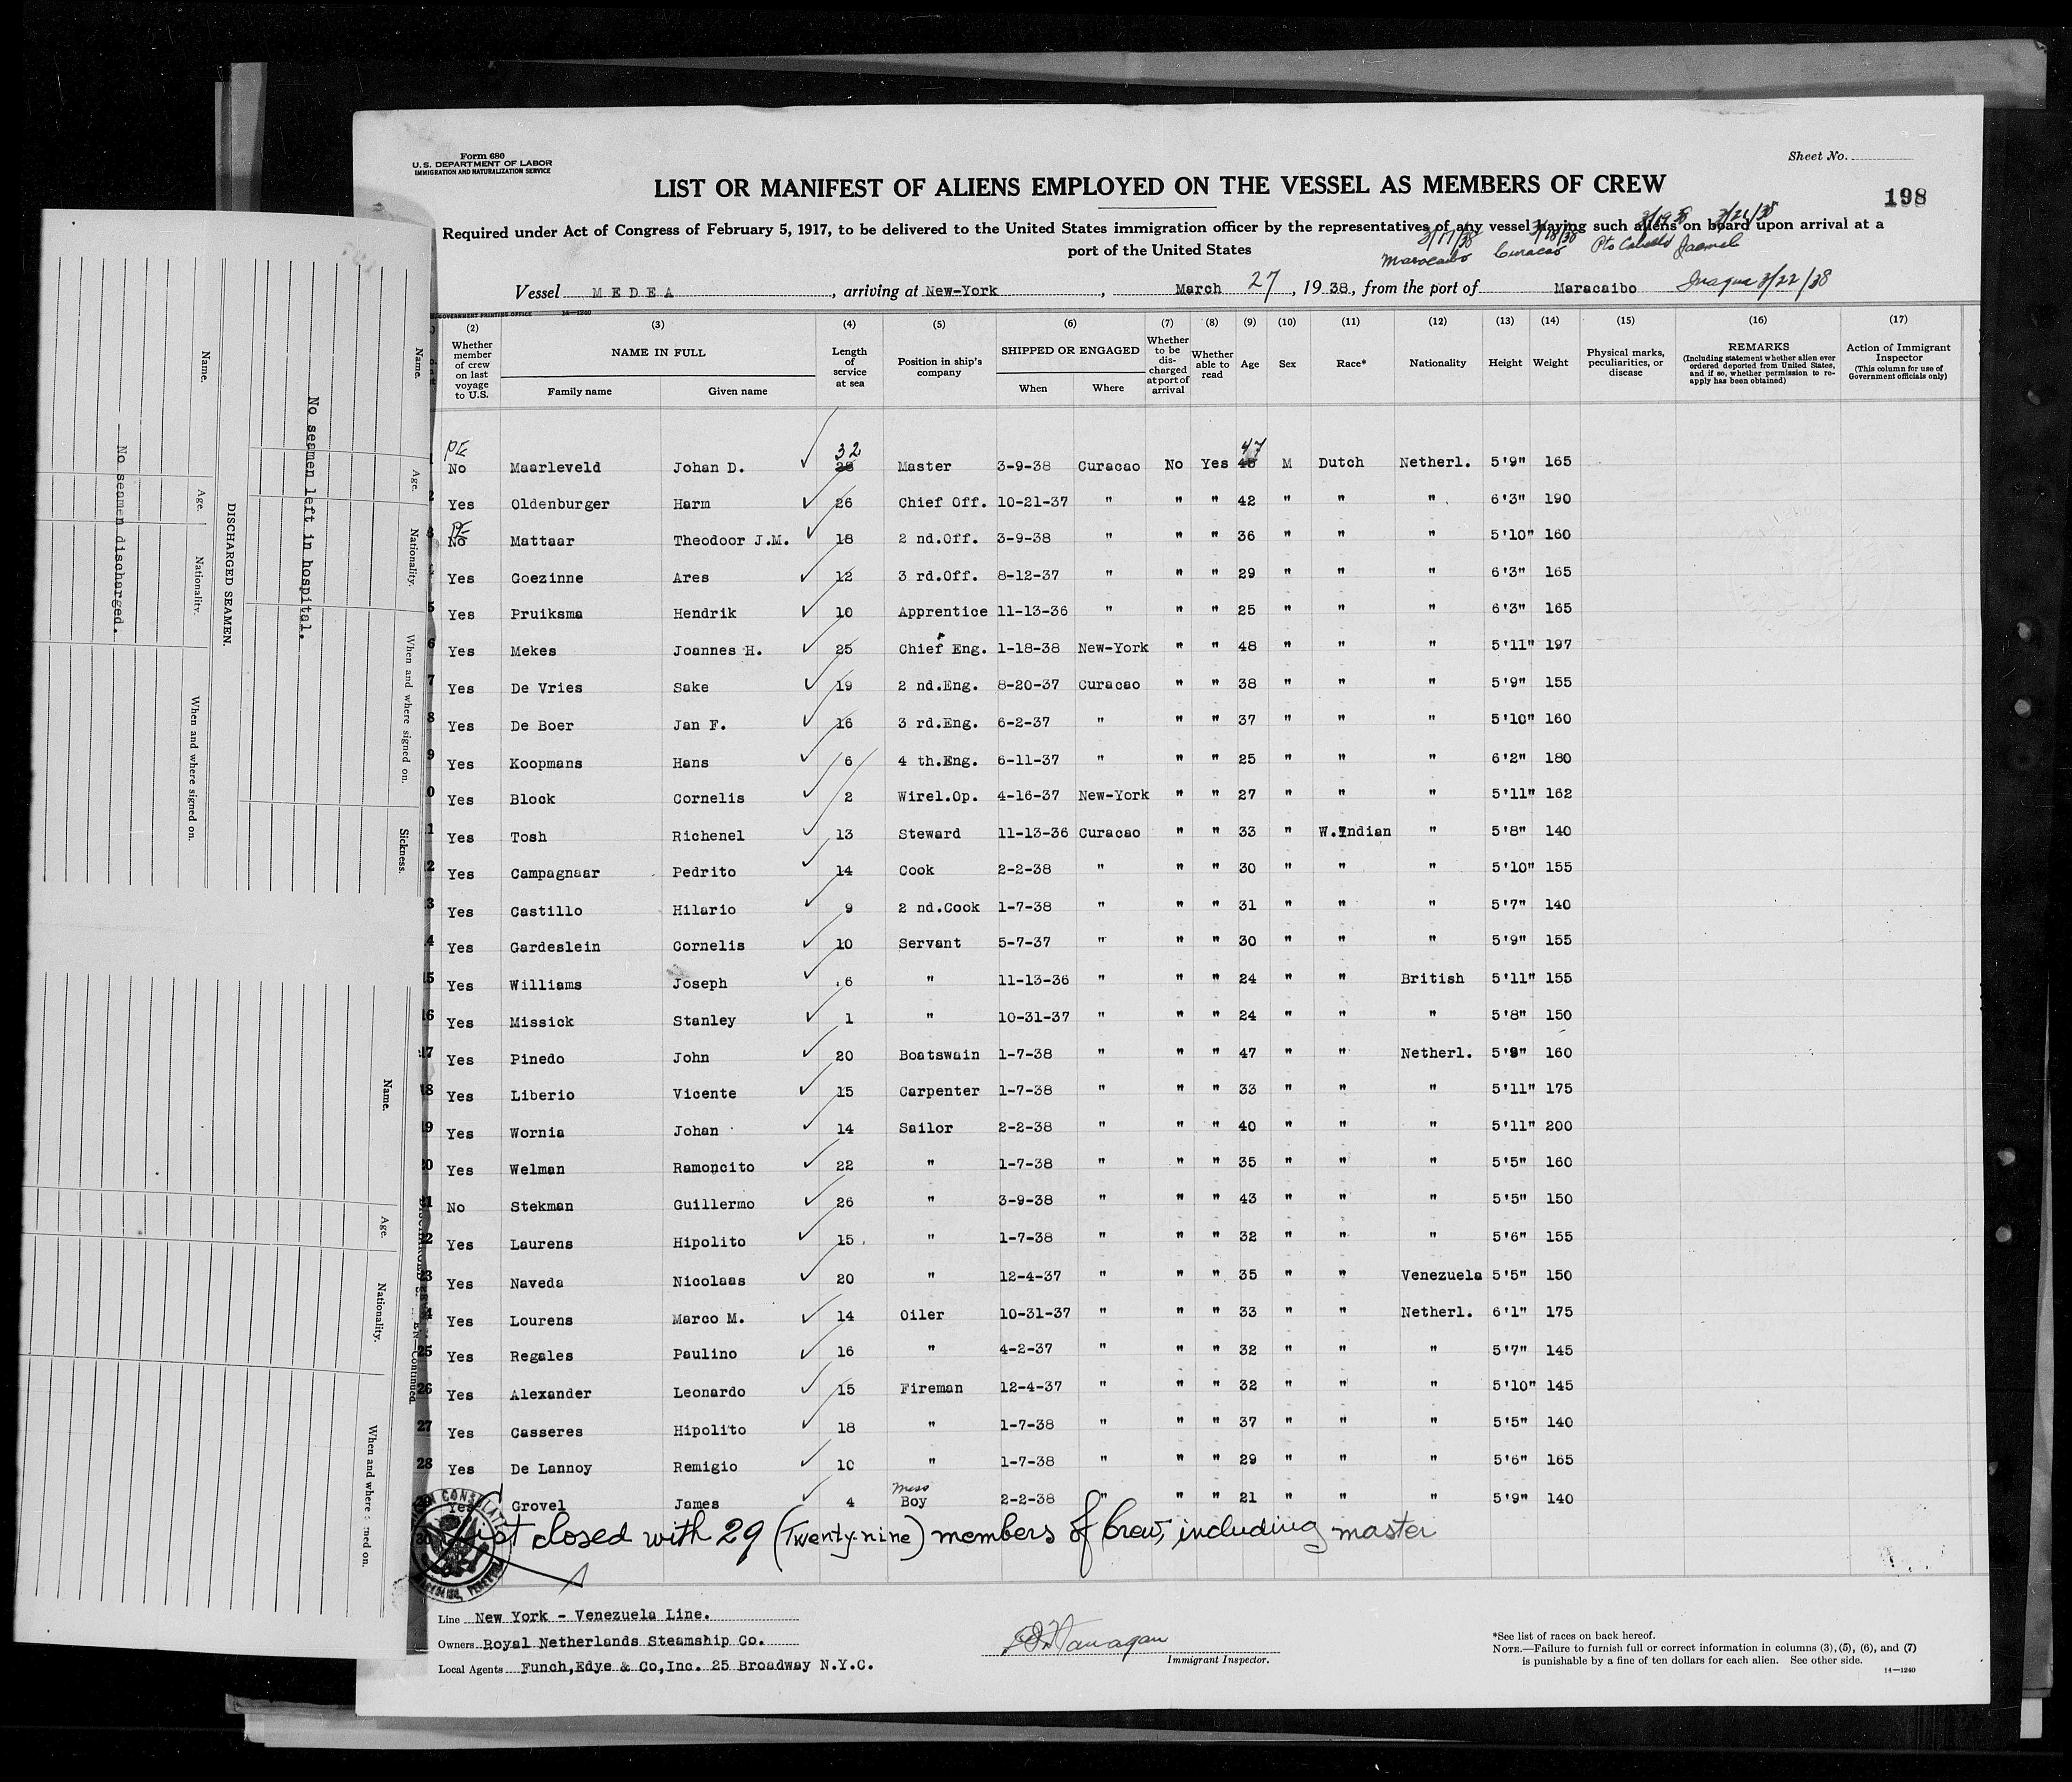 Form 680
U. S. DEPARTMENT OF LABOR
IMMIGRATION AND NATURALIZATION SERVICE
Sheet No.
LIST OR MANIFEST OF ALIENS EMPLOYED ON THE VESSEL AS MEMBERS OF CREW
198
Required under Act of Congress of February 5, 1917, to be delivered to the United States immigration officer by the representatives of any vessel having such aliens on board upon arrival at a
port of the United States
3/17/38 3/18/38 3/19/38 3/21/38
Maracaibo Curacao Pto Cabello Jacmel
Vessel MEDEA, arriving at New-York, March 27, 1938, from the port of Maracaibo Inagua 3/22/38
GOVERNMENT PRINTING OFFICE 14—1240
(2) (3) (4) (5) (6) (7) (8) (9) (10) (11) (12) (13) (14) (15) (16) (17)
Whether member of crew on last voyage to U.S. NAME IN FULL Family name Given name Length of service at sea Position in ship's company SHIPPED OR ENGAGED When Where Whether to be discharged at port of arrival Whether able to read Age Sex Race* Nationality Height Weight Physical marks, peculiarities, or disease REMARKS (Including statement whether alien ever ordered deported from United States, and if so, whether permission to reapply has been obtained) Action of Immigrant Inspector (This column for use of Government officials only)
PE 32 47
No Maarleveld Johan D. 28 Master 3-9-38 Curacao No Yes M Dutch Netherl. 5'9" 165
Yes Oldenburger Harm 26 Chief Off. 10-21-37 " " " 42 " " " 6'3" 190
PE
No Mattaar Theodoor J.M. 18 2 nd.Off. 3-9-38 " " " 36 " " " 5'10" 160
Yes Goezinne Ares 12 3 rd.Off. 8-12-37 " " " 29 " " " 6'3" 165
5 Yes Pruiksma Hendrik 10 Apprentice 11-13-36 " " " 25 " " " 6'3" 165
6 Yes Mekes Joannes H. 25 Chief Eng. 1-18-38 New-York " " 48 " " " 5'11" 197
7 Yes De Vries Sake 19 2 nd.Eng. 8-20-37 Curacao " " 38 " " " 5'9" 155
8 Yes De Boer Jan F. 16 3 rd.Eng. 6-2-37 " " " 37 " " " 5'10" 160
9 Yes Koopmans Hans 6 4 th.Eng. 6-11-37 " " " 25 " " " 6'2" 180
0 Yes Block Cornelis 2 Wirel.Op. 4-16-37 New-York " " 27 " " " 5'11" 162
1 Yes Tosh Richenel 13 Steward 11-13-36 Curacao " " 33 " W.Indian " 5'8" 140
2 Yes Campagnaar Pedrito 14 Cook 2-2-38 " " " 30 " " " 5'10" 155
3 Yes Castillo Hilario 9 2 nd.Cook 1-7-38 " " " 31 " " " 5'7" 140
4 Yes Gardeslein Cornelis 10 Servant 5-7-37 " " " 30 " " " 5'9" 155
15 Yes Williams Joseph 6 " 11-13-36 " " " 24 " " British 5'11" 155
16 Yes Missick Stanley 1 " 10-31-37 " " " 24 " " " 5'8" 150
17 Yes Pinedo John 20 Boatswain 1-7-38 " " " 47 " " Netherl. 5'9" 160
18 Yes Liberio Vicente 15 Carpenter 1-7-38 " " " 33 " " " 5'11" 175
19 Yes Wornia Johan 14 Sailor 2-2-38 " " " 40 " " " 5'11" 200
20 Yes Welman Ramoncito 22 " 1-7-38 " " " 35 " " " 5'5" 160
21 No Stekman Guillermo 26 " 3-9-38 " " " 43 " " " 5'5" 150
22 Yes Laurens Hipolito 15 " 1-7-38 " " " 32 " " " 5'6" 155
23 Yes Naveda Nicolaas 20 " 12-4-37 " " " 35 " " Venezuela 5'5" 150
24 Yes Lourens Marco M. 14 Oiler 10-31-37 " " " 33 " " Netherl. 6'1" 175
25 Yes Regales Paulino 16 " 4-2-37 " " " 32 " " " 5'7" 145
26 Yes Alexander Leonardo 15 Fireman 12-4-37 " " " 32 " " " 5'10" 145
27 Yes Casseres Hipolito 18 " 1-7-38 " " " 37 " " " 5'5" 140
28 Yes De Lannoy Remigio 10 " 1-7-38 " " " 29 " " " 5'6" 165
Mess
Yes Grovel James 4 Boy 2-2-38 " " " 21 " " " 5'9" 140
List closed with 29 (Twenty-nine) members of Crew, including master
Line New York - Venezuela Line.
Owners Royal Netherlands Steamship Co.
Local Agents Funch,Edye & Co,Inc. 25 Broadway N.Y.C.
Immigrant Inspector.
*See list of races on back hereof.
NOTE.—Failure to furnish full or correct information in columns (3), (5), (6), and (7)
is punishable by a fine of ten dollars for each alien. See other side.
14—1240
Name. Age. Nationality. When and where signed on. Sickness.
No seamen left in hospital.
DISCHARGED SEAMEN.
Name. Age. Nationality. When and where signed on.
No seamen discharged.
Name. Age. Nationality. When and where signed on.
EN—Continued.